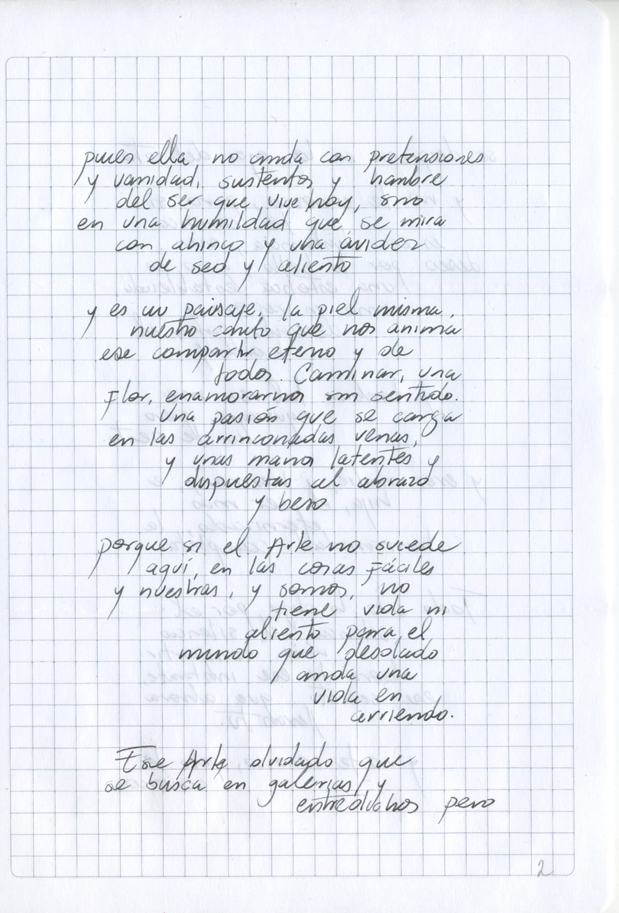 pues ella no anda con pretensiones
y vanidad, sustentos y hambre
del ser que vive hoy, sino
en una humildad que se mira
con ahinco y una avidez
de sed y aliento
y es un paisaje, la piel misma,
nuestro canto que nos anima
ese compartir eterno y de
todos. Caminar, una
Flor, enamorarnos sin sentido.
Una pasión que se carga
en las arrinconadas venas,
y unas manos latentes y
dispuestas al abrazo
y beso
porque si el Arte no sucede
aquí, en las cosas Fáciles
y nuestras, y somos, no
tiene vida ni
aliento para el
mundo que desolado
anda una
vida en
arriendo.
Ese Arte olvidado que
se busca en galerías y
pero
2